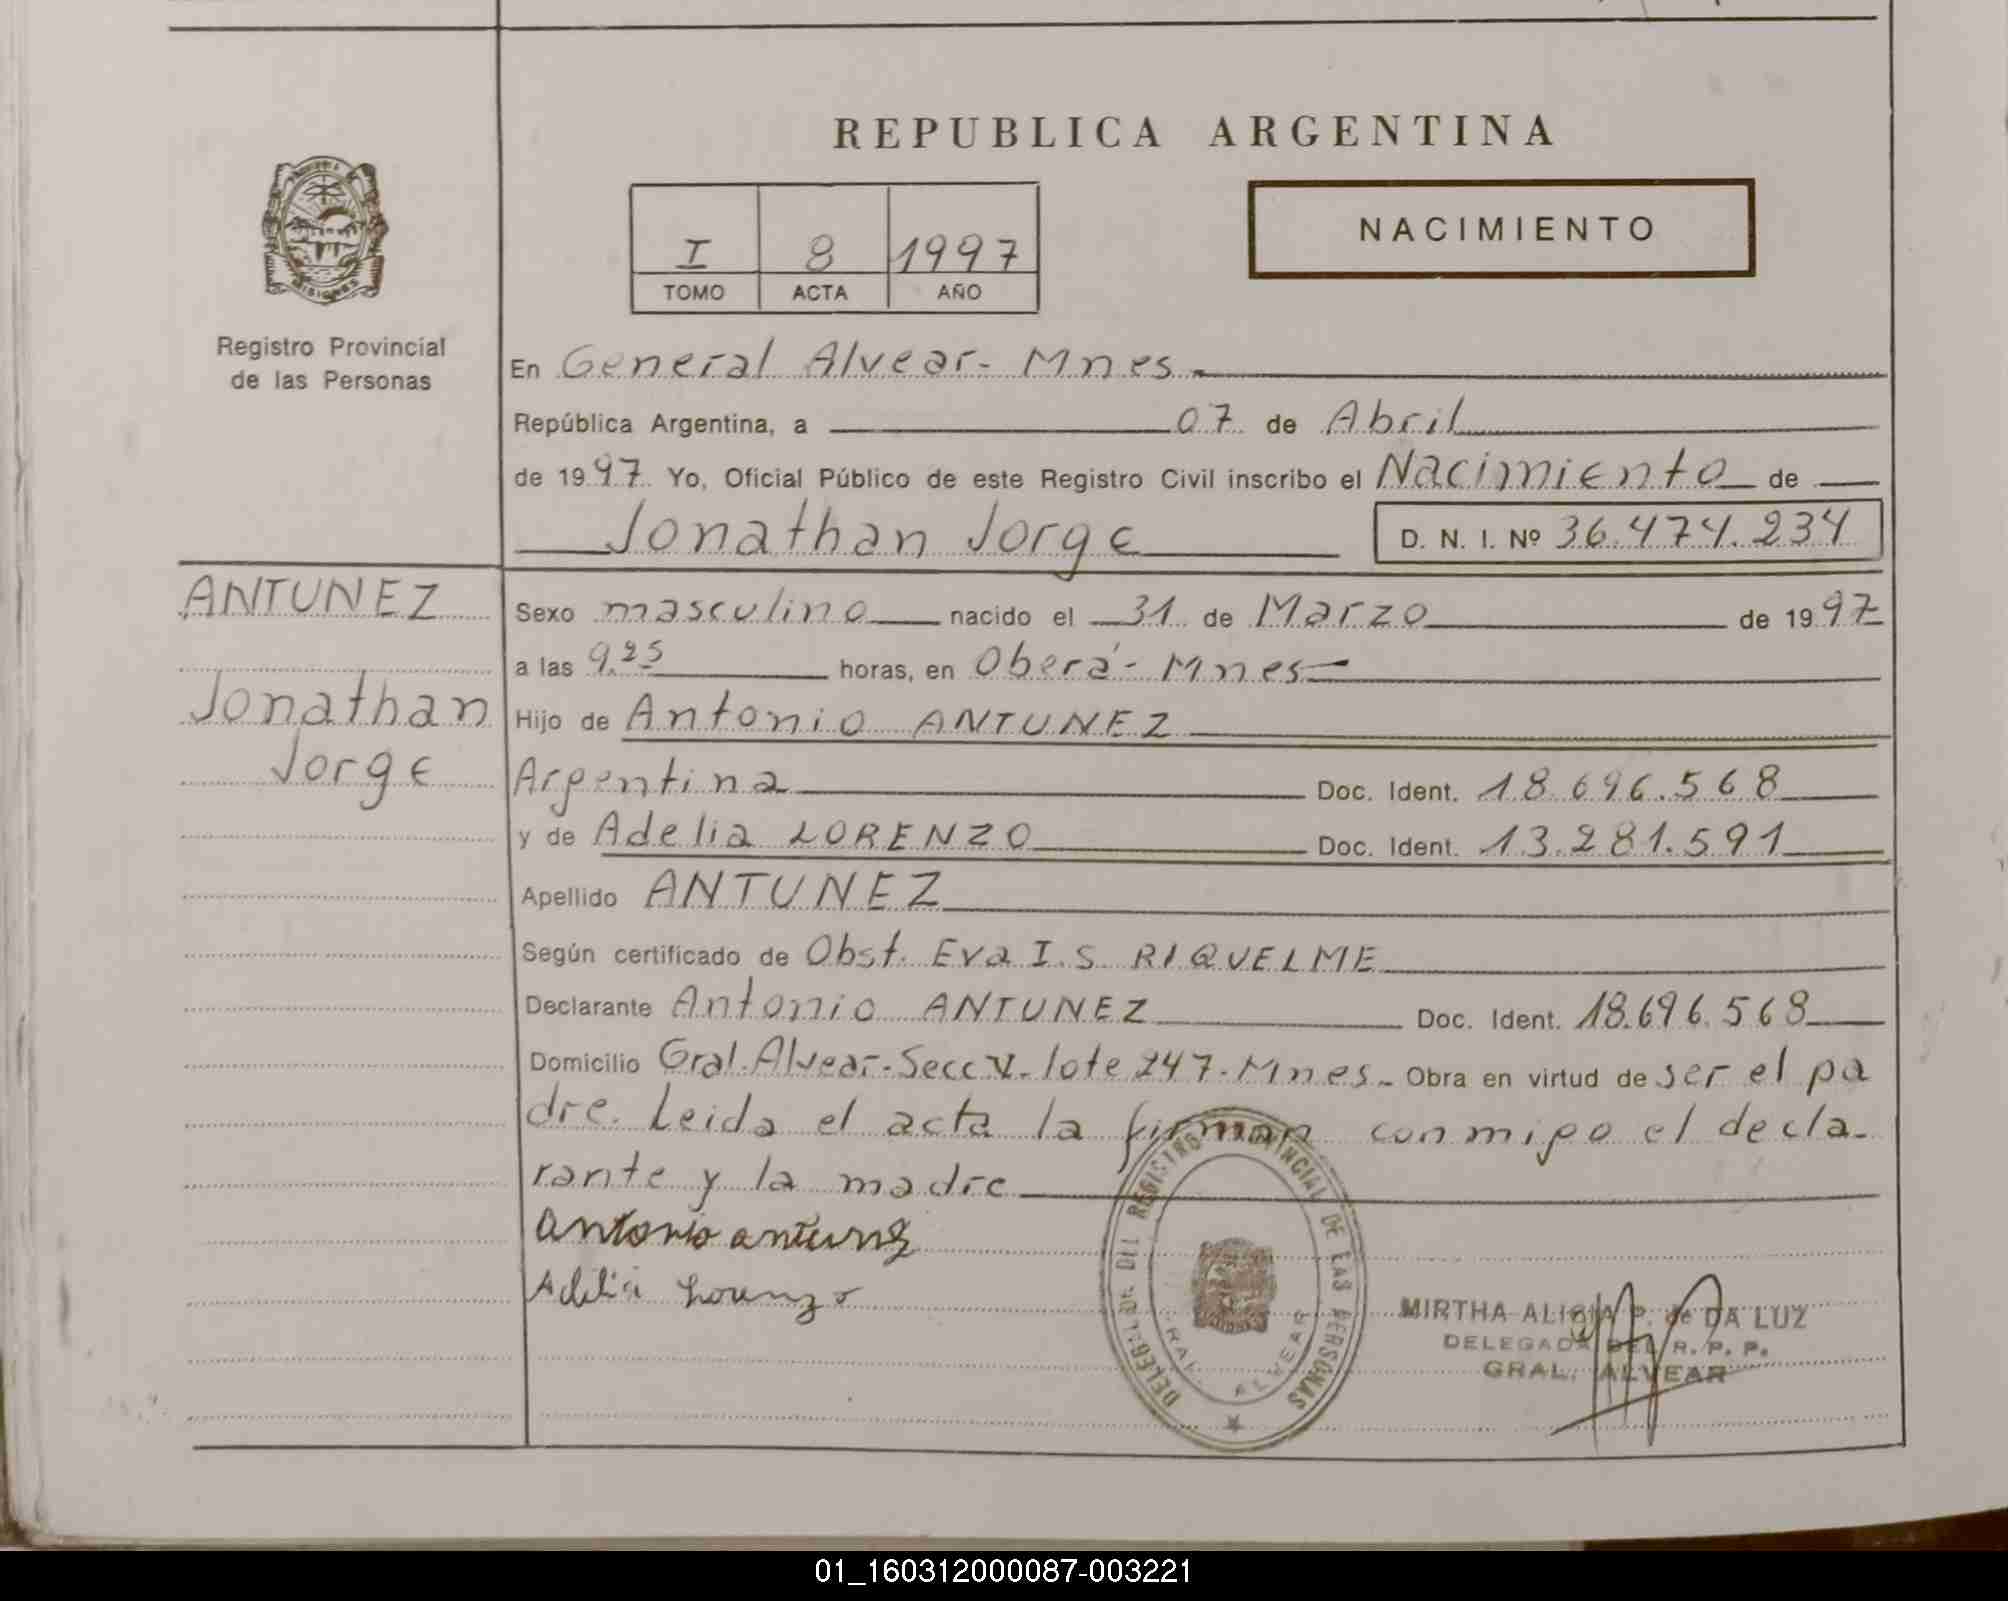 REPUBLICA ARGENTINA
I 8 1997
TOMO ACTA AÑO
NACIMIENTO
MISIONES
Registro Provincial
de las Personas
En General Alvear - Mnes
República Argentina, a 07 de Abril
de 1997 Yo, Oficial Público de este Registro Civil inscribo el Nacimiento de
Jonathan Jorge D. N. I. Nº 36.474.234
ANTUNEZ
Jonathan
Jorge
Sexo masculino nacido el 31 de Marzo de 1997
a las 9.25 horas, en Oberá - Mnes
Hijo de Antonio ANTUNEZ
Argentina Doc. Ident. 18.696.568
y de Adelia LORENZO Doc. Ident. 13.281.591
Apellido ANTUNEZ
Según certificado de Obst. Eva I. S. RIQUELME
Declarante Antonio ANTUNEZ Doc. Ident. 18.696.568
Domicilio Gral. Alvear - Secc V. lote 247 - Mnes - Obra en virtud de ser el pa
dre. Leida el acta la firman conmigo el decla-
rante y la madre
antonio antunez
Adelia Lorenzo
DELEG. DEL REGISTRO PROVINCIAL DE LAS PERSONAS
GRAL. ALVEAR
MIRTHA ALICIA P. de DA LUZ
DELEGADA DEL R. P. P.
GRAL. ALVEAR
01_160312000087-003221